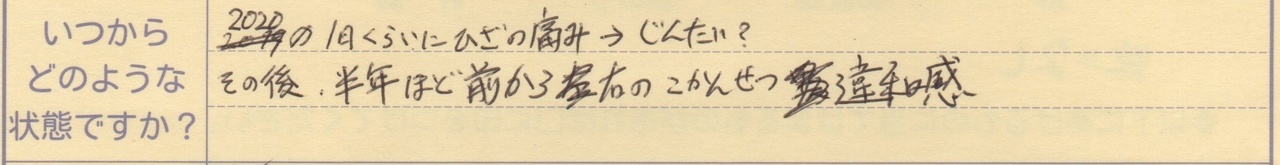 いつから
どのような
状態ですか？
2020の1日くらいにひざの痛み→じんたい？
その後、半年ほど前から右のこかんせつ違和感